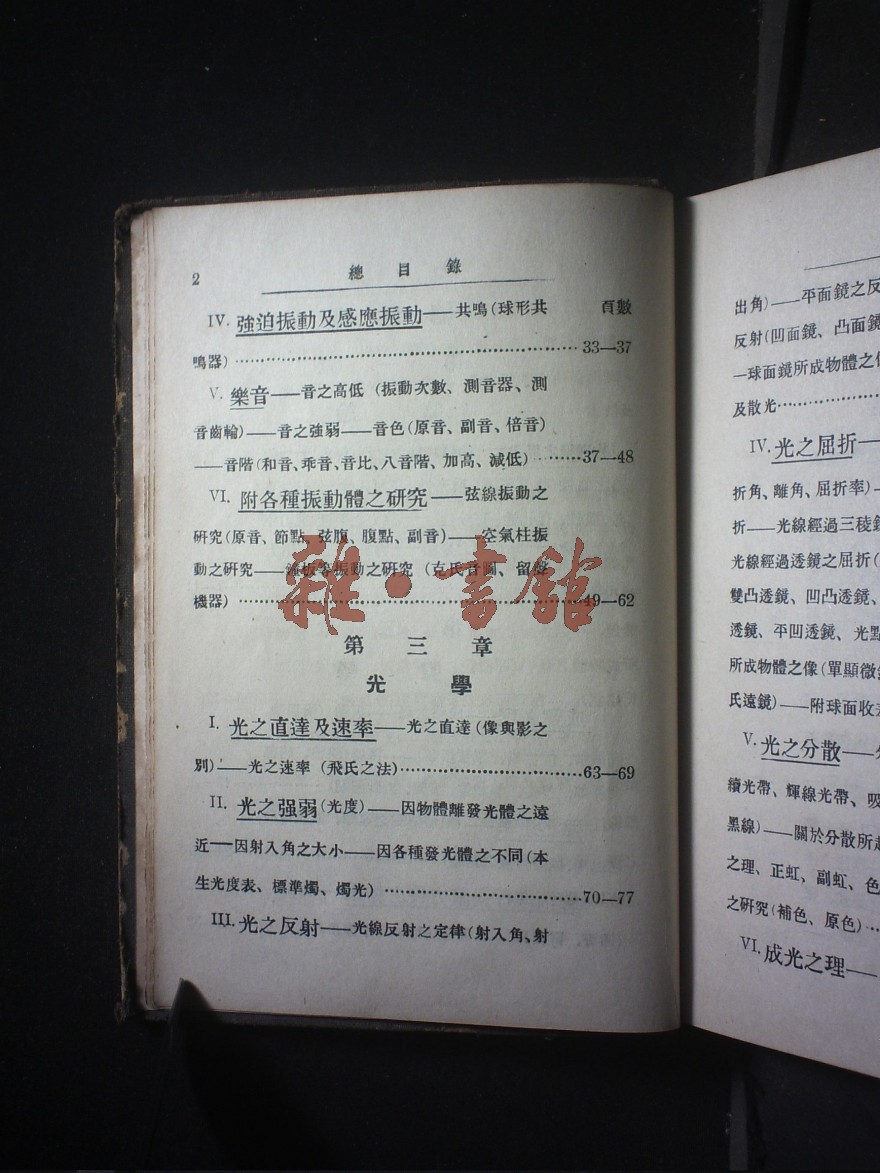 2
總目錄
IV. 強迫振動及感應振動——共鳴(球形共 頁數
鳴器)……………………………………33—37
V. 樂音——音之高低 (振動次數、測音器、測
音齒輪)——音之強弱——音色(原音、副音、倍音)
——音階(和音、乖音、音比、八音階、加高、減低)……37—48
VI. 附各種振動體之研究——弦線振動之
研究(原音、節點、弦腹、腹點、副音)——空氣柱振
動之研究——鐘板等振動之研究 (克氏音圖、留聲
機器)……………………………………49—62
雜·書館
第三章
光學
I. 光之直達及速率——光之直達(像與影之
別)——光之速率 (飛氏之法)……………………63—69
II. 光之强弱(光度)——因物體離發光體之遠
近——因射入角之大小——因各種發光體之不同(本
生光度表、標準燭、燭光)……………………70—77
III. 光之反射——光線反射之定律(射入角、射
出角)——平面鏡之反
反射(凹面鏡、凸面鏡
—球面鏡所成物體之像
及散光……………
IV. 光之屈折——
折角、離角、屈折率)—
折——光線經過三稜鏡
光線經過透鏡之屈折(
雙凸透鏡、凹凸透鏡、
透鏡、平凹透鏡、光點
所成物體之像(單顯微鏡
氏遠鏡)——附球面收差
V. 光之分散——
續光帶、輝線光帶、吸
黑線)——關於分散所起
之理、正虹、副虹、色
之研究(補色、原色)…
VI. 成光之理——